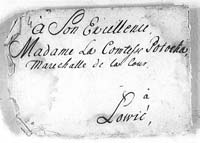 à Son Excellence,
Madame La Comtesse Potocka,
Marechalle de la Cour,
à
Lowić,